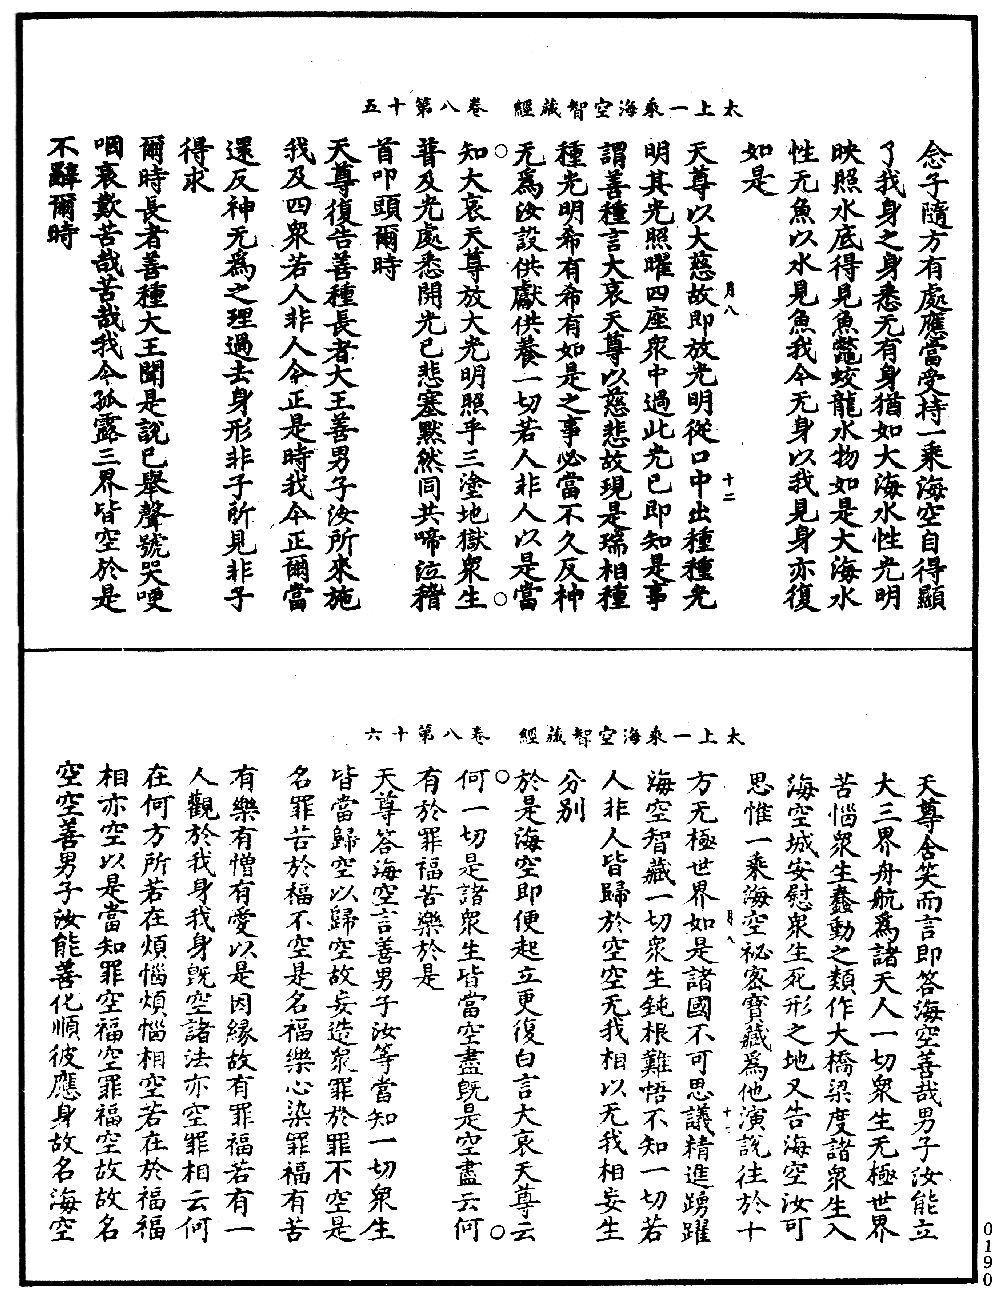 太上一乘海空智藏經　卷八第十五
念子隨方有處應當受持一乘海空自得顯
了我身之身悉无有身猶如大海水性光明
映照水底得見魚鼈蛟龍水物如是大海水
性无魚以水見魚我今无身以我見身亦復
如是
天尊以大慈故即放光明從口中出種種光
月八　十二
明其光照曜四座衆中過此光已即知是事
謂善種言大哀天尊以慈悲故現是瑞相種
種光明希有希有如是之事必當不久反神
无爲汝設供獻供養一切若人非人以是當
知大哀天尊放大光明照乎三塗地獄衆生
普及光處悉開光已悲塞默然同共啼泣稽
首叩頭爾時
天尊復告善種長者大王善男子汝所來施
我及四衆若人非人今正是時我今正爾當
還反神无爲之理過去身形非子所見非子
得求
爾時長者善種大王聞是說已舉聲號哭哽
咽哀歎苦哉苦哉我今孤露三界皆空於是
不辭爾時
太上一乘海空智藏經　卷八第十六
天尊含笑而言即答海空善哉男子汝能立
大三界舟航爲諸天人一切衆生无極世界
苦惱衆生蠢動之類作大橋梁度諸衆生入
海空城安慰衆生死形之地又告海空汝可
思惟一乘海空祕密寶藏爲他演說往於十
月八
方无極世界如是諸國不可思議精進踴躍
海空智藏一切衆生鈍根難悟不知一切若
人非人皆歸於空空无我相以无我相妄生
分别
於是海空即便起立更復白言大哀天尊云
何一切是諸衆生皆當空盡旣是空盡云何
有於罪福苦樂於是
天尊答海空言善男子汝等當知一切衆生
皆當歸空以歸空故妄造衆罪於罪不空是
名罪苦於福不空是名福樂心染罪福有苦
有樂有憎有愛以是因緣故有罪福若有一
人觀於我身我身旣空諸法亦空罪相云何
在何方所若在煩惱煩惱相空若在於福福
相亦空以是當知罪空福空罪福空故故名
空空善男子汝能善化順彼應身故名海空
0190